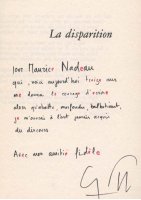 La disparition
pour Maurice Nadeau
qui, voici aujourd'hui treize ans
me donna le courage d'écrire
alors qu'hésitant, confondu, balbutiant,
je m'avisais à tout jamais acquis
du discours
Avec mon amitié fidèle